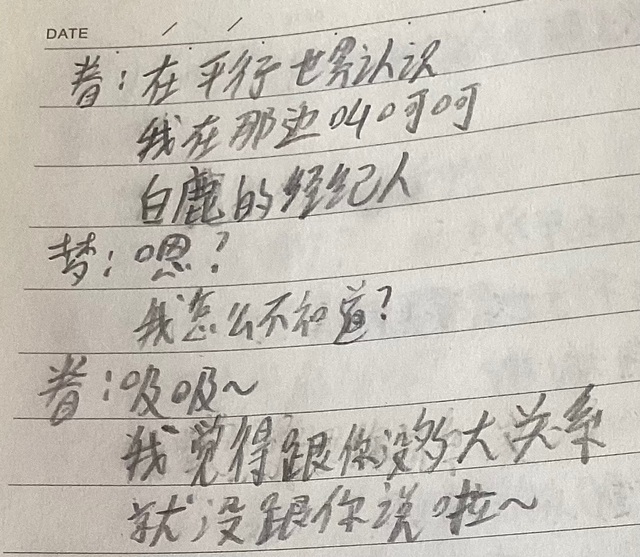 DATE / /
耆：在平行世界认识
我在那边叫呵呵
白鹿的经纪人
梦：嗯？
我怎么不知道？
耆：吸吸～
我觉得跟你没多大关系
就没跟你说啦～